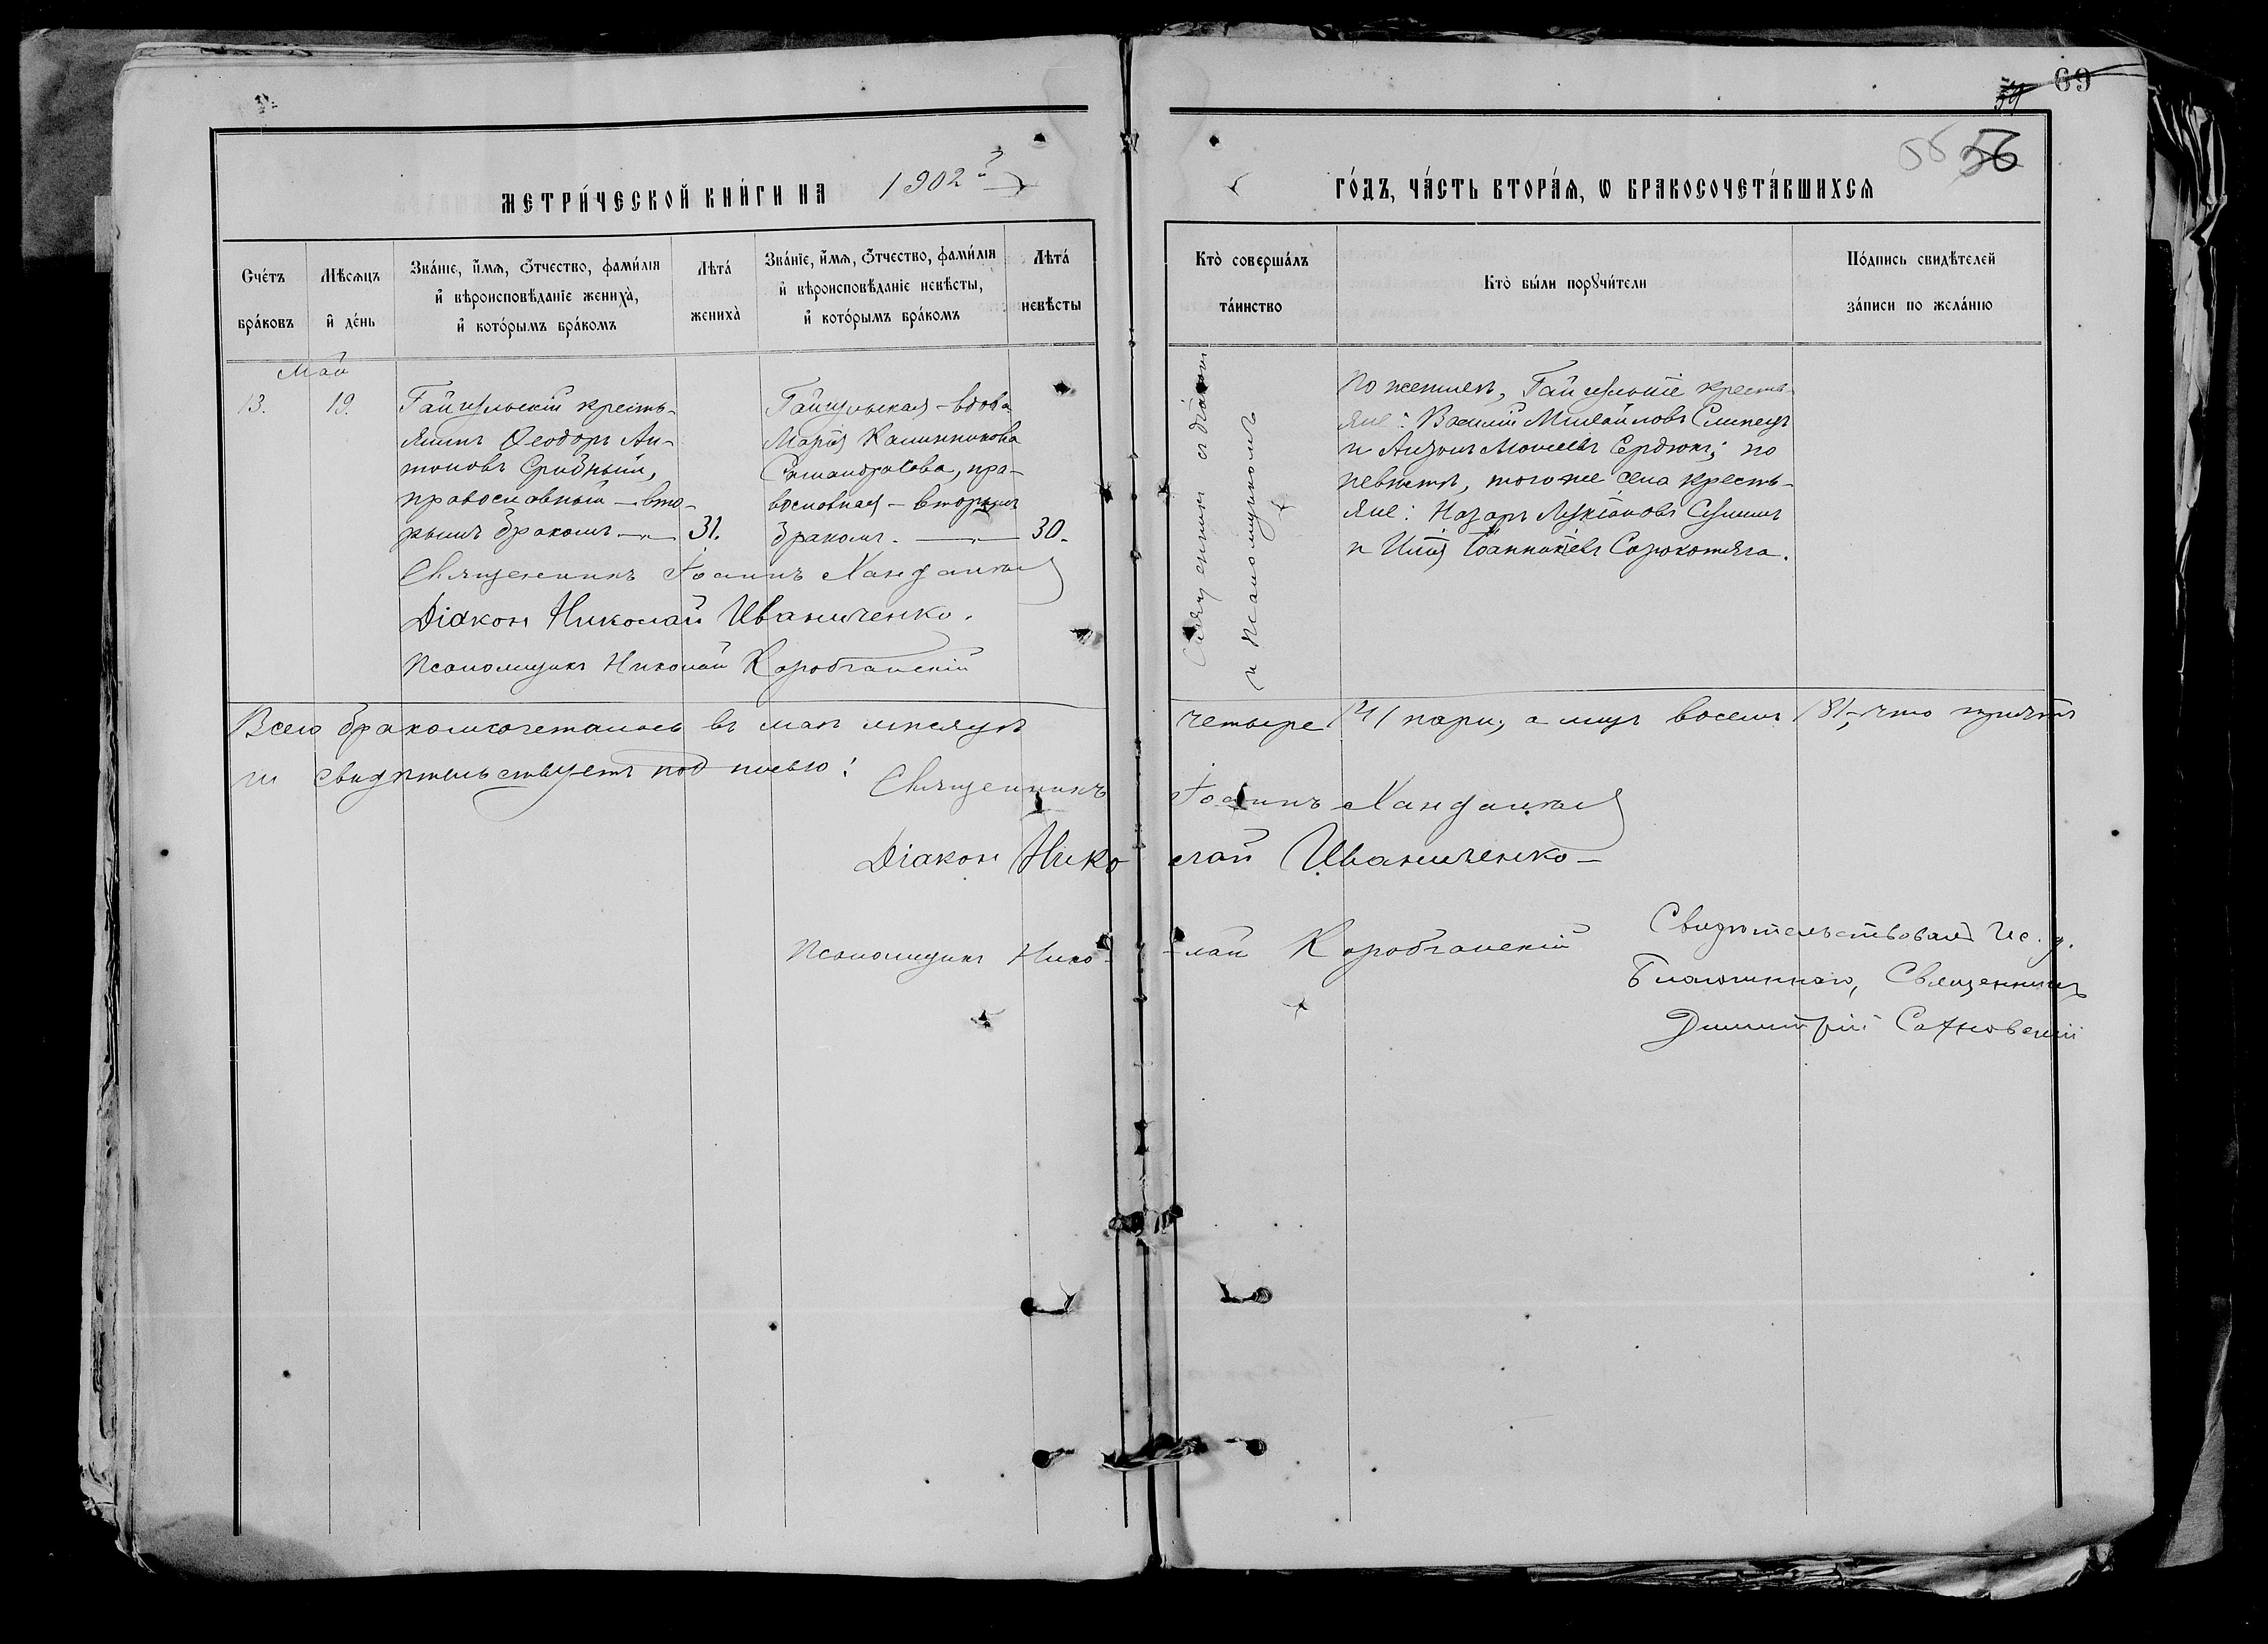 69
56 56
МЕТРИ́ЧЕСКОЙ КНИ́ГИ НА 1902й
ГО́ДЪ, ЧА́СТЬ ВТОРА́Ѧ, Ѡ БРАКОСОЧЕТА́ВШИХСѦ
Сче́тъ бра́ковъ
Мѣ́сѧцъ и҆ де́нь
Зва́нїе, и҆́мѧ, ѻ҆́тчество, фами́лїѧ
и҆ вѣроисповѣ́данїе жениха̀,
и҆ кото́рымъ бра́комъ
Лѣта̀ жениха̀
Зва́нїе, и҆́мѧ, ѻ҆́тчество, фами́лїѧ
и҆ вѣроисповѣ́данїе невѣ́сты,
и҆ кото́рымъ бра́комъ
Лѣта̀ невѣ́сты
Кто̀ соверша́лъ та́инство
Кто̀ бы́ли порꙋчи́тели
По́дпись свидѣ́телей
за́писи по жела́нїю
Май
13. 19.
Гайшульскій кресть-
янинъ Ѳеодоръ Ан-
тоновъ
православный — вто-
рымъ бракомъ — 31.
вдова
Марія Калинникова
пра-
вославная — вторымъ
бракомъ. — 30.
Священникъ съ діакономъ
и псаломщикомъ
По женихѣ, кресть-
яне: Василій Михайловъ Слипецъ
и Моисеевъ Сердюкъ; по
невѣстѣ, того же села кресть-
яне: Назаръ Лукіановъ
и Илія Іоанникіевъ Сорокотяга.
Священникъ Іоаннъ
Діаконъ Николай Иваниченко.
Псаломщикъ Николай Коробчанскій
Всего бракомсочеталось въ маѣ мѣсяцѣ четыре /4/ пары, а лицъ восемь /8/, что причтъ
и свидѣтельствуетъ подписью:
Священникъ Іоаннъ
Діаконъ Николай Иваниченко —
Псаломщикъ Нико- -лай Коробчанскій
Свидѣтельствовалъ Ис. д.
Благочиннаго, Священникъ
Димитрій